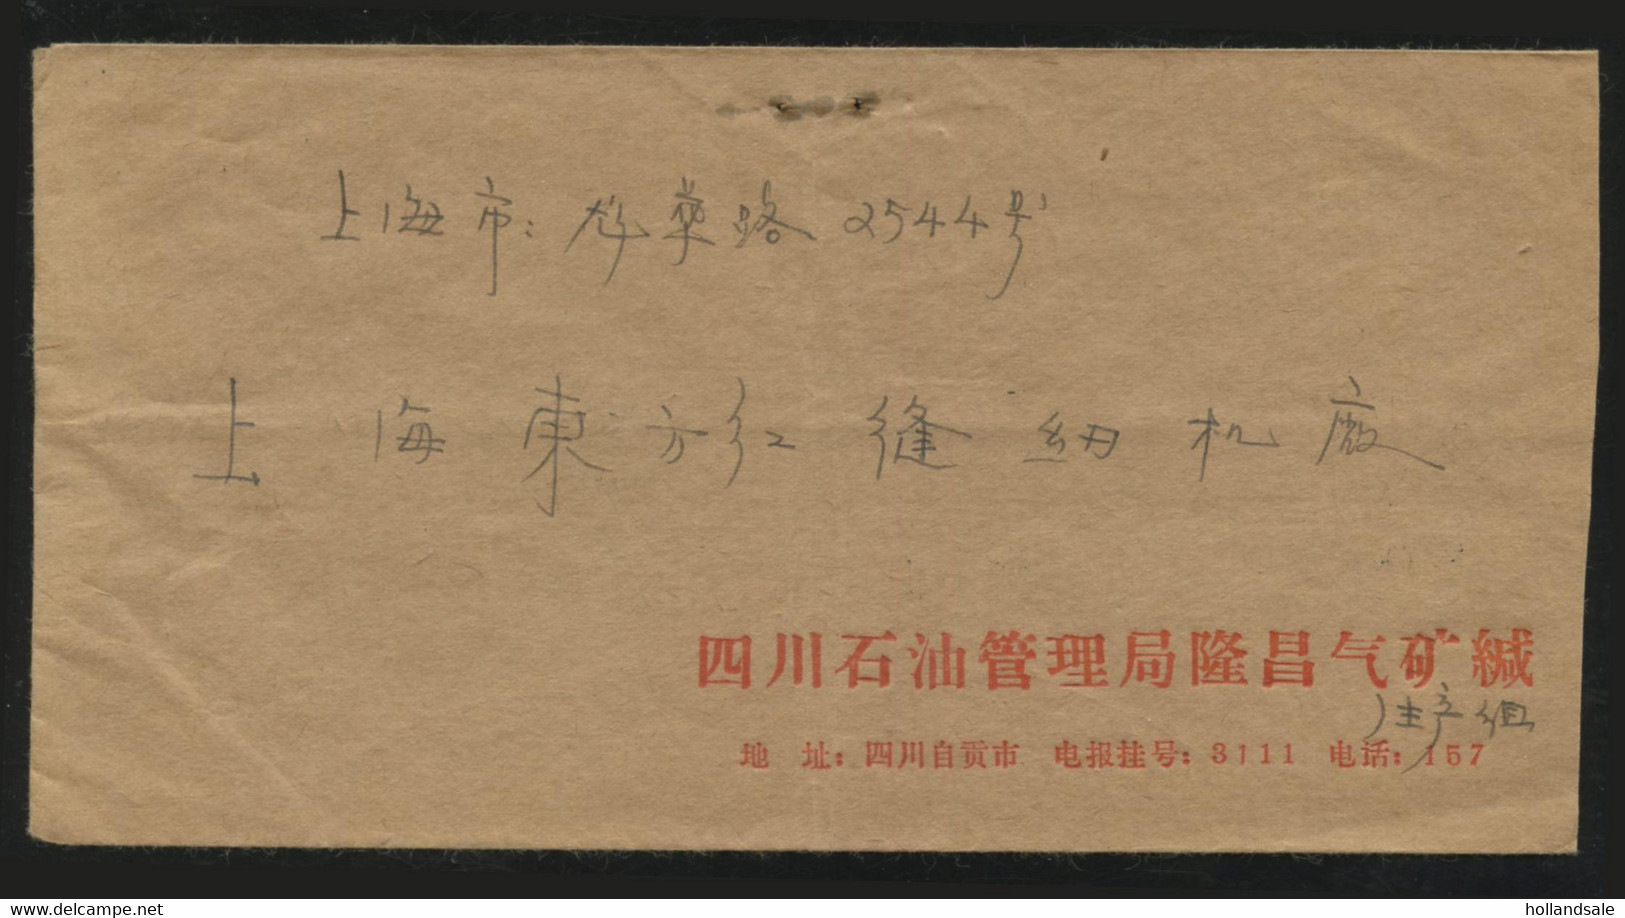 上海市: 龙华路 2544号
上海東方红缝纫机廠
四川石油管理局隆昌气矿緘
生产组
地 址: 四川自贡市 电报挂号: 3111 电话: 157
www.delcampe.net
hollandsale